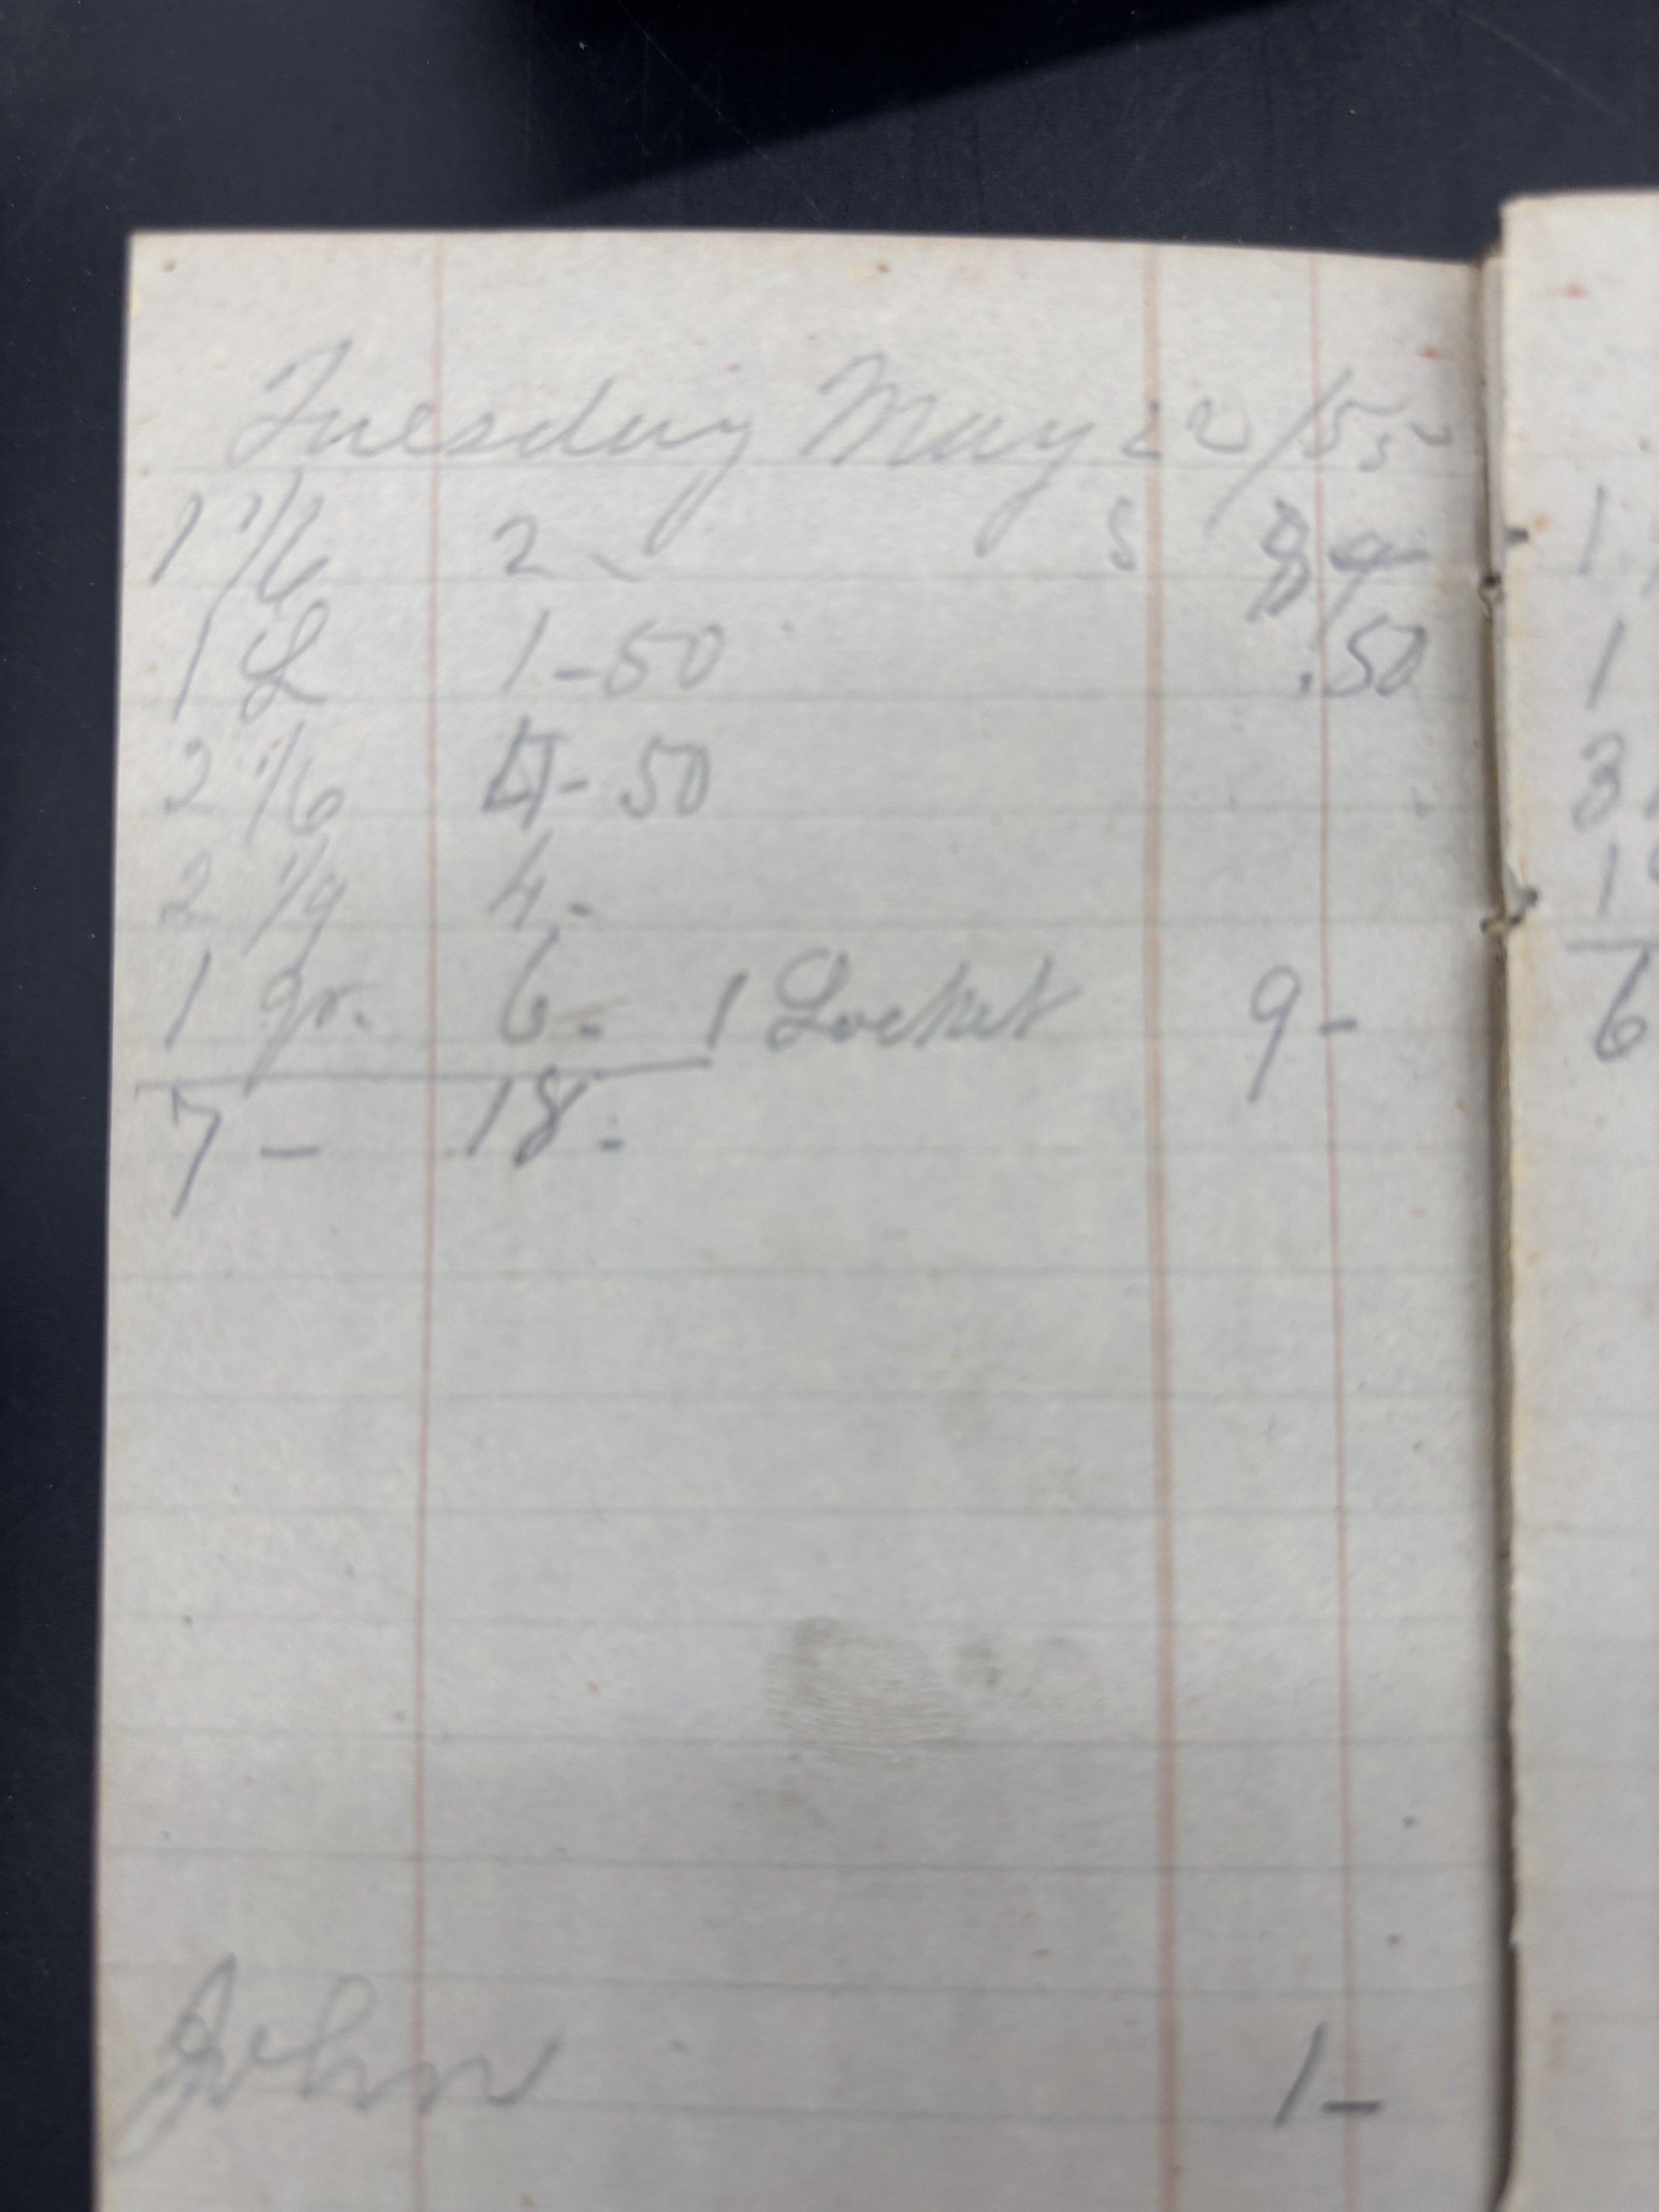 Tuesday May 22/55
1 1/6 2 -
1 L 1-50 .50
2 1/6 4-50
2 1/9 4-
1 gr. 6- 1 Locket 9-
7 - 18-
John 1-
1
1
3
1
6